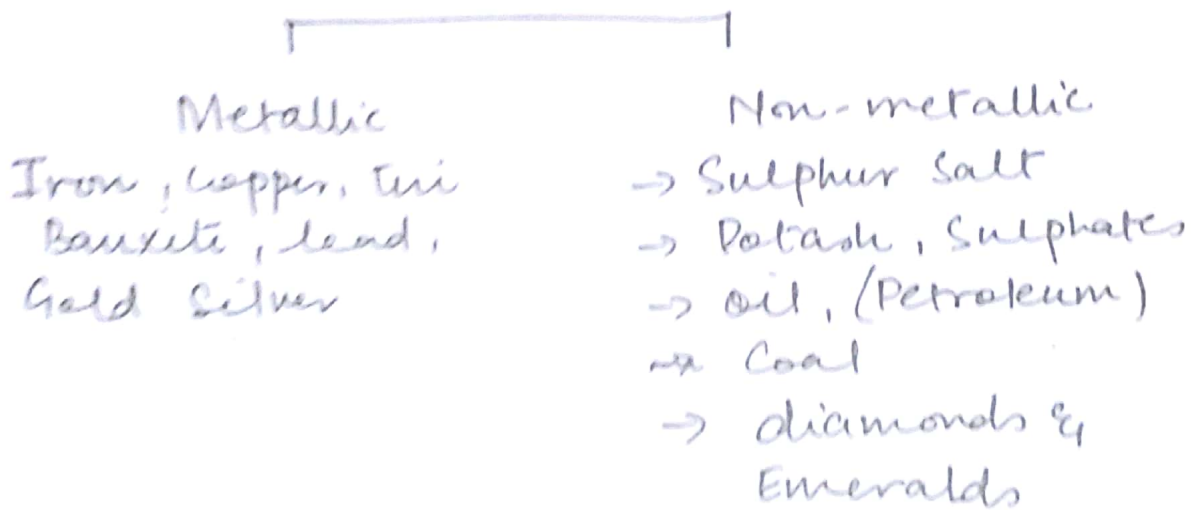 Metallic
Iron, Copper, Tin
Bauxite, lead,
Gold Silver
Non-metallic
→ Sulphur Salt
→ Potash, Sulphates
→ Oil, (Petroleum)
→ Coal
→ diamonds &
Emeralds